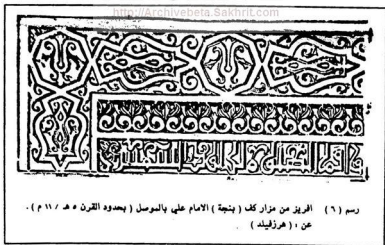 http://Archivebeta.Sakhrit.com
رسم (٦) افريز من مزار كف (بنجة) الامام علي بالموصل (بحدود القرن ٥ هـ / ١١ م).
عن : (هرزفيلد)